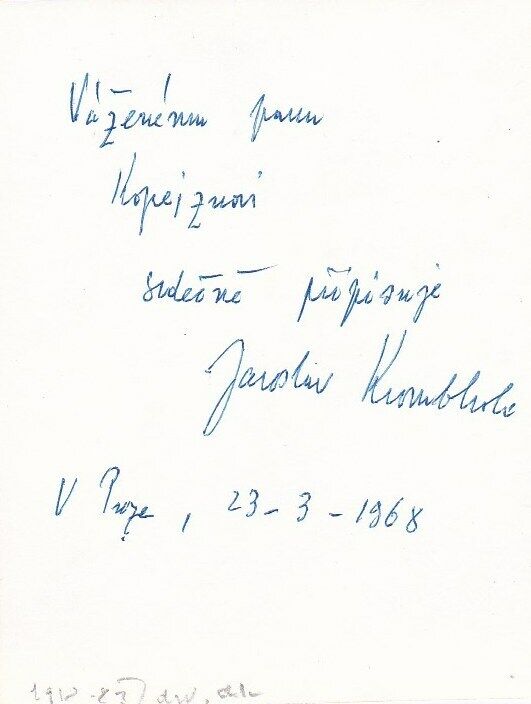 Váženému panu
Kopejznovi
srdečně připisuje
Jaroslav Krombholc
V Praze, 23-3-1968